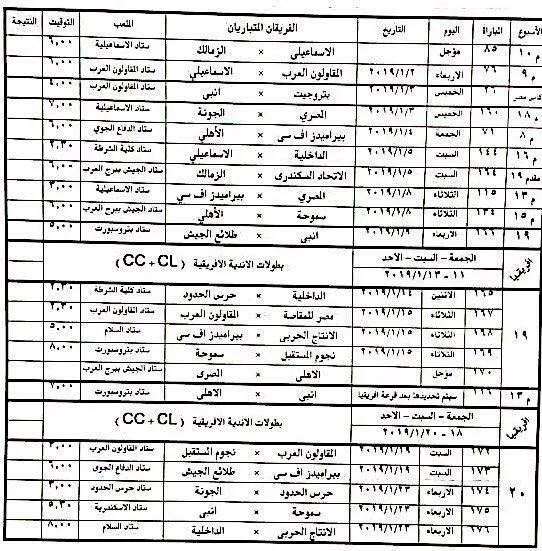 الأسبوع المباراة اليوم التاريخ الفريقان المتباريان الملعب التوقيت النتيجة
م ١٠ ٨٥ مؤجل الاسماعيلى × الزمالك ستاد الاسماعيلية ٦,٠٠
م ٩ ٧٦ الاربعاء ٢٠١٩/١/٢ المقاولون العرب × الاسماعيلى ستاد المقاولون العرب ٦,٠٠
كاس مصر ٢٦ الخميس ٢٠١٩/١/٣ بتروجيت × انبى ستاد المقاولون العرب ٤,٠٠
م ١٨ ١٦٠ الخميس ٢٠١٩/١/٣ المصري × الجونة ستاد الاسماعيلية ٧,٠٠
م ٨ ٧١ الجمعة ٢٠١٩/١/٤ بيراميدز اف سى × الأهلي ستاد الدفاع الجوي ٦,٠٠
م ١٦ ١٤٤ السبت ٢٠١٩/١/٥ الداخلية × الاسماعيلى ستاد كلية الشرطة ٢,٣٠
مقدم ١٩ السبت ٢٠١٩/١/٥ الاتحاد السكندرى × الزمالك ستاد الجيش ببرج العرب ٦,٠٠
م ١٣ ١١٥ الثلاثاء ٢٠١٩/١/٨ المصري × بيراميدز اف سي ستاد الاسماعيلية ٣,٠٠
م ١٥ ١٣٤ الثلاثاء ٢٠١٩/١/٨ سموحة × الأهلي ستاد الجيش ببرج العرب ٦,٠٠
١٩ الاربعاء ٢٠١٩/١/٩ انبى × طلائع الجيش ستاد بتروسبورت ٥,٠٠
افريقيا الجمعة – السبت – الاحد بطولات الاندية الافريقية ( CC + CL )
١١ – ٢٠١٩/١/١٣
١٩ ١٦٥ الاثنين ٢٠١٩/١/١٤ الداخلية × حرس الحدود ستاد كلية الشرطة ٢,٣٠
١٦٧ الثلاثاء ٢٠١٩/١/١٥ مصر للمقاصة × المقاولون العرب ستاد المقاولون العرب ٢,٣٠
١٦٨ الثلاثاء ٢٠١٩/١/١٥ الانتاج الحربى × بيراميدز اف سى ستاد السلام ٥,٠٠
١٦٩ الثلاثاء ٢٠١٩/١/١٥ نجوم المستقبل × سموحة ستاد بتروسبورت ٨,٠٠
٢٧٠ مؤجل الاهلى × المصرى ستاد الجيش ببرج العرب
م ١٣ سيتم تحديدها بعد قرعة افريقيا انبى × الاهلى ستاد بتروسبورت ٧,٠٠
افريقيا الجمعة – السبت – الاحد بطولات الاندية الافريقية ( CC + CL )
١٨ – ٢٠١٩/١/٢٠
٢٠ ١٧٢ السبت ٢٠١٩/١/١٩ المقاولون العرب × نجوم المستقبل ستاد المقاولون العرب ٣,٠٠
١٧٣ السبت ٢٠١٩/١/١٩ بيراميدز اف سى × طلائع الجيش ستاد الدفاع الجوى ٦,٠٠
١٧٤ الاربعاء ٢٠١٩/١/٢٣ حرس الحدود × الجونة ستاد حرس الحدود ٣,٠٠
١٧٥ الاربعاء ٢٠١٩/١/٢٣ سموحة × انبى ستاد الاسكندرية ٥,٣٠
١٧٦ الاربعاء ٢٠١٩/١/٢٣ الانتاج الحربى × الداخلية ستاد السلام ٨,٠٠